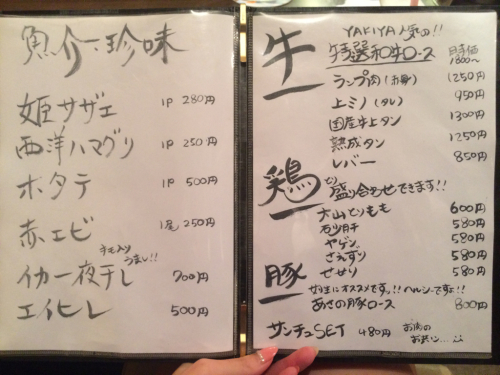 魚介・珍味
姫サザエ 1P 280円
西洋ハマグリ 1P 250円
ホタテ 1P 500円
赤エビ 1尾 250円
すも入り うまし!!
イカ一夜干し 700円
エイヒレ 500円
牛
YAKIYA人気の!!
特選和牛ロース 日時価 1800~
ランプ肉(赤身) 1250円
上ミノ(タレ) 950円
国産牛上タン 1300円
熟成タン 1250円
レバー 850円
鶏
とり
盛り合わせできます!!
大山とりもも 600円
砂肝 580円
ヤゲン 580円
さえずり 580円
せせり 580円
豚
女性にオススメですっ!! ヘルシーですョ!!
あさの豚ロース 800円
サンチュSET 480円
お肉の
お供に……